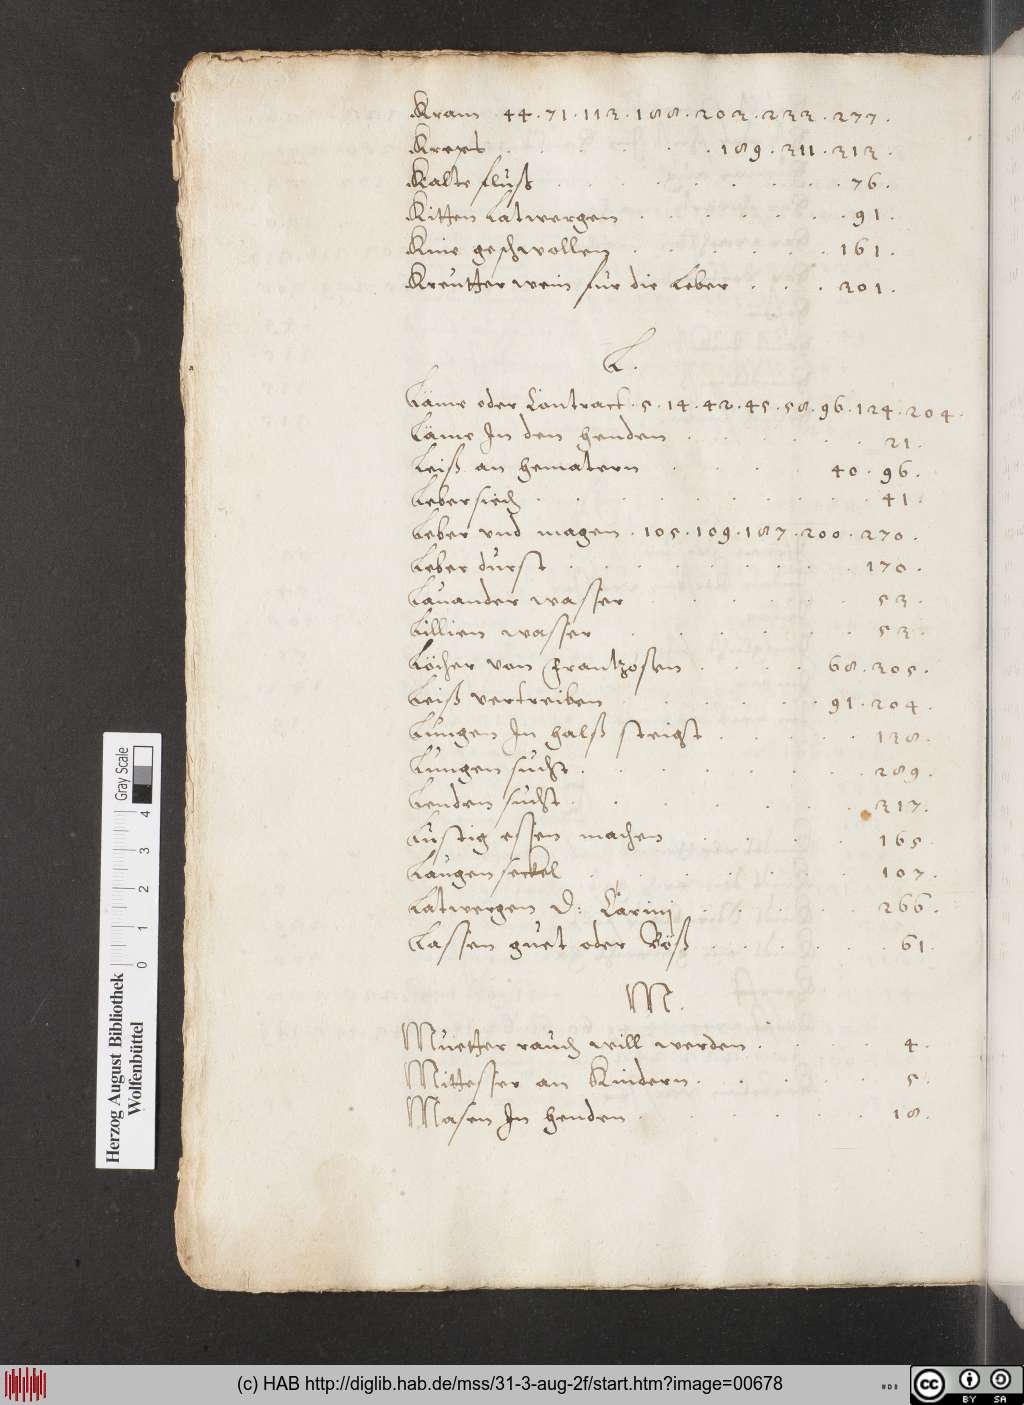 Kram 44 · 71 · 113 · 188 · 203 · 233 · 277 ·
Kreps · 189 · 311 · 313 ·
Kalte fluß 76 ·
Kitten Latwergen 91 ·
Knie geschwollen 161 ·
Kreutter wein für die Leber 301 ·
L.
Läme oder Contract · 5 · 14 · 42 · 45 · 58 · 96 · 124 · 204 ·
Läme In den henden 21 ·
Leiß an 40 · 96 ·
Lebersiech 41 ·
Leber vnd magen · 105 · 109 · 187 · 200 · 270 ·
Leber durst 170 ·
Lauander wasser 53 ·
Lillien wasser 53 ·
Löcher von Frantzosen 68 · 305 ·
Leiß vertreiben 91 · 204 ·
Lungen In halß steigt 138 ·
Lungen sucht 289 ·
Lenden sucht 317 ·
Lustig essen machen 165 ·
Laugen seckel 107 ·
Latwergen D: Carinj 266 ·
Lassen guet oder Böß 61 ·
M.
Muetter rauch will werden 4 ·
Mittesser an Kindern 5 ·
Masen In henden 18 ·
Gray Scale
0 1 2 3 4
Herzog August Bibliothek
Wolfenbüttel
(c) HAB http://diglib.hab.de/mss/31-3-aug-2f/start.htm?image=00678
cc BY SA